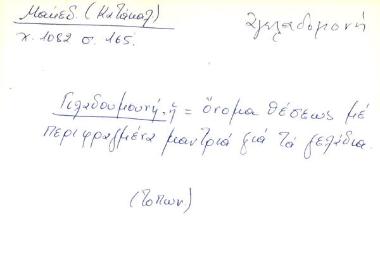 Μακεδ. (Κατάκαλ)
χ. 1082 σ. 165.
ἀγελαδομονή
Γελαδουμουνή, ἡ = ὄνομα θέσεως μέ
περιφραγμένα μαντριά γιά τά γελάδια.
(Τοπων)